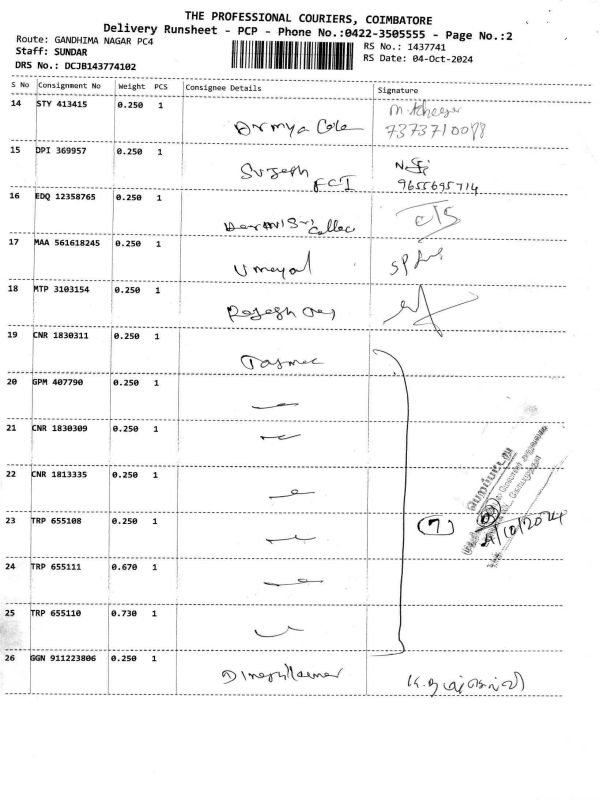 THE PROFESSIONAL COURIERS, COIMBATORE
Delivery Runsheet - PCP - Phone No.:0422-3505555 - Page No.:2
Route: GANDHIMA NAGAR PC4
Staff: SUNDAR
DRS No.: DCJB143774102
RS No.: 1437741
RS Date: 04-Oct-2024
S No Consignment No Weight PCS Consignee Details Signature
14 STY 413415 0.250 1
7373710098
15 DPI 369957 0.250 1 Suresh FCI
9655695714
16 EDQ 12358765 0.250 1
17 MAA 561618245 0.250 1 Umayal
18 MTP 3103154 0.250 1 Rajesh
19 CNR 1830311 0.250 1 Tasmac
20 GPM 407790 0.250 1
21 CNR 1830309 0.250 1
22 CNR 1813335 0.250 1
23 TRP 655108 0.250 1 7 4/10/2024
24 TRP 655111 0.670 1
25 TRP 655110 0.730 1
26 GGN 911223806 0.250 1 Dineshkumar